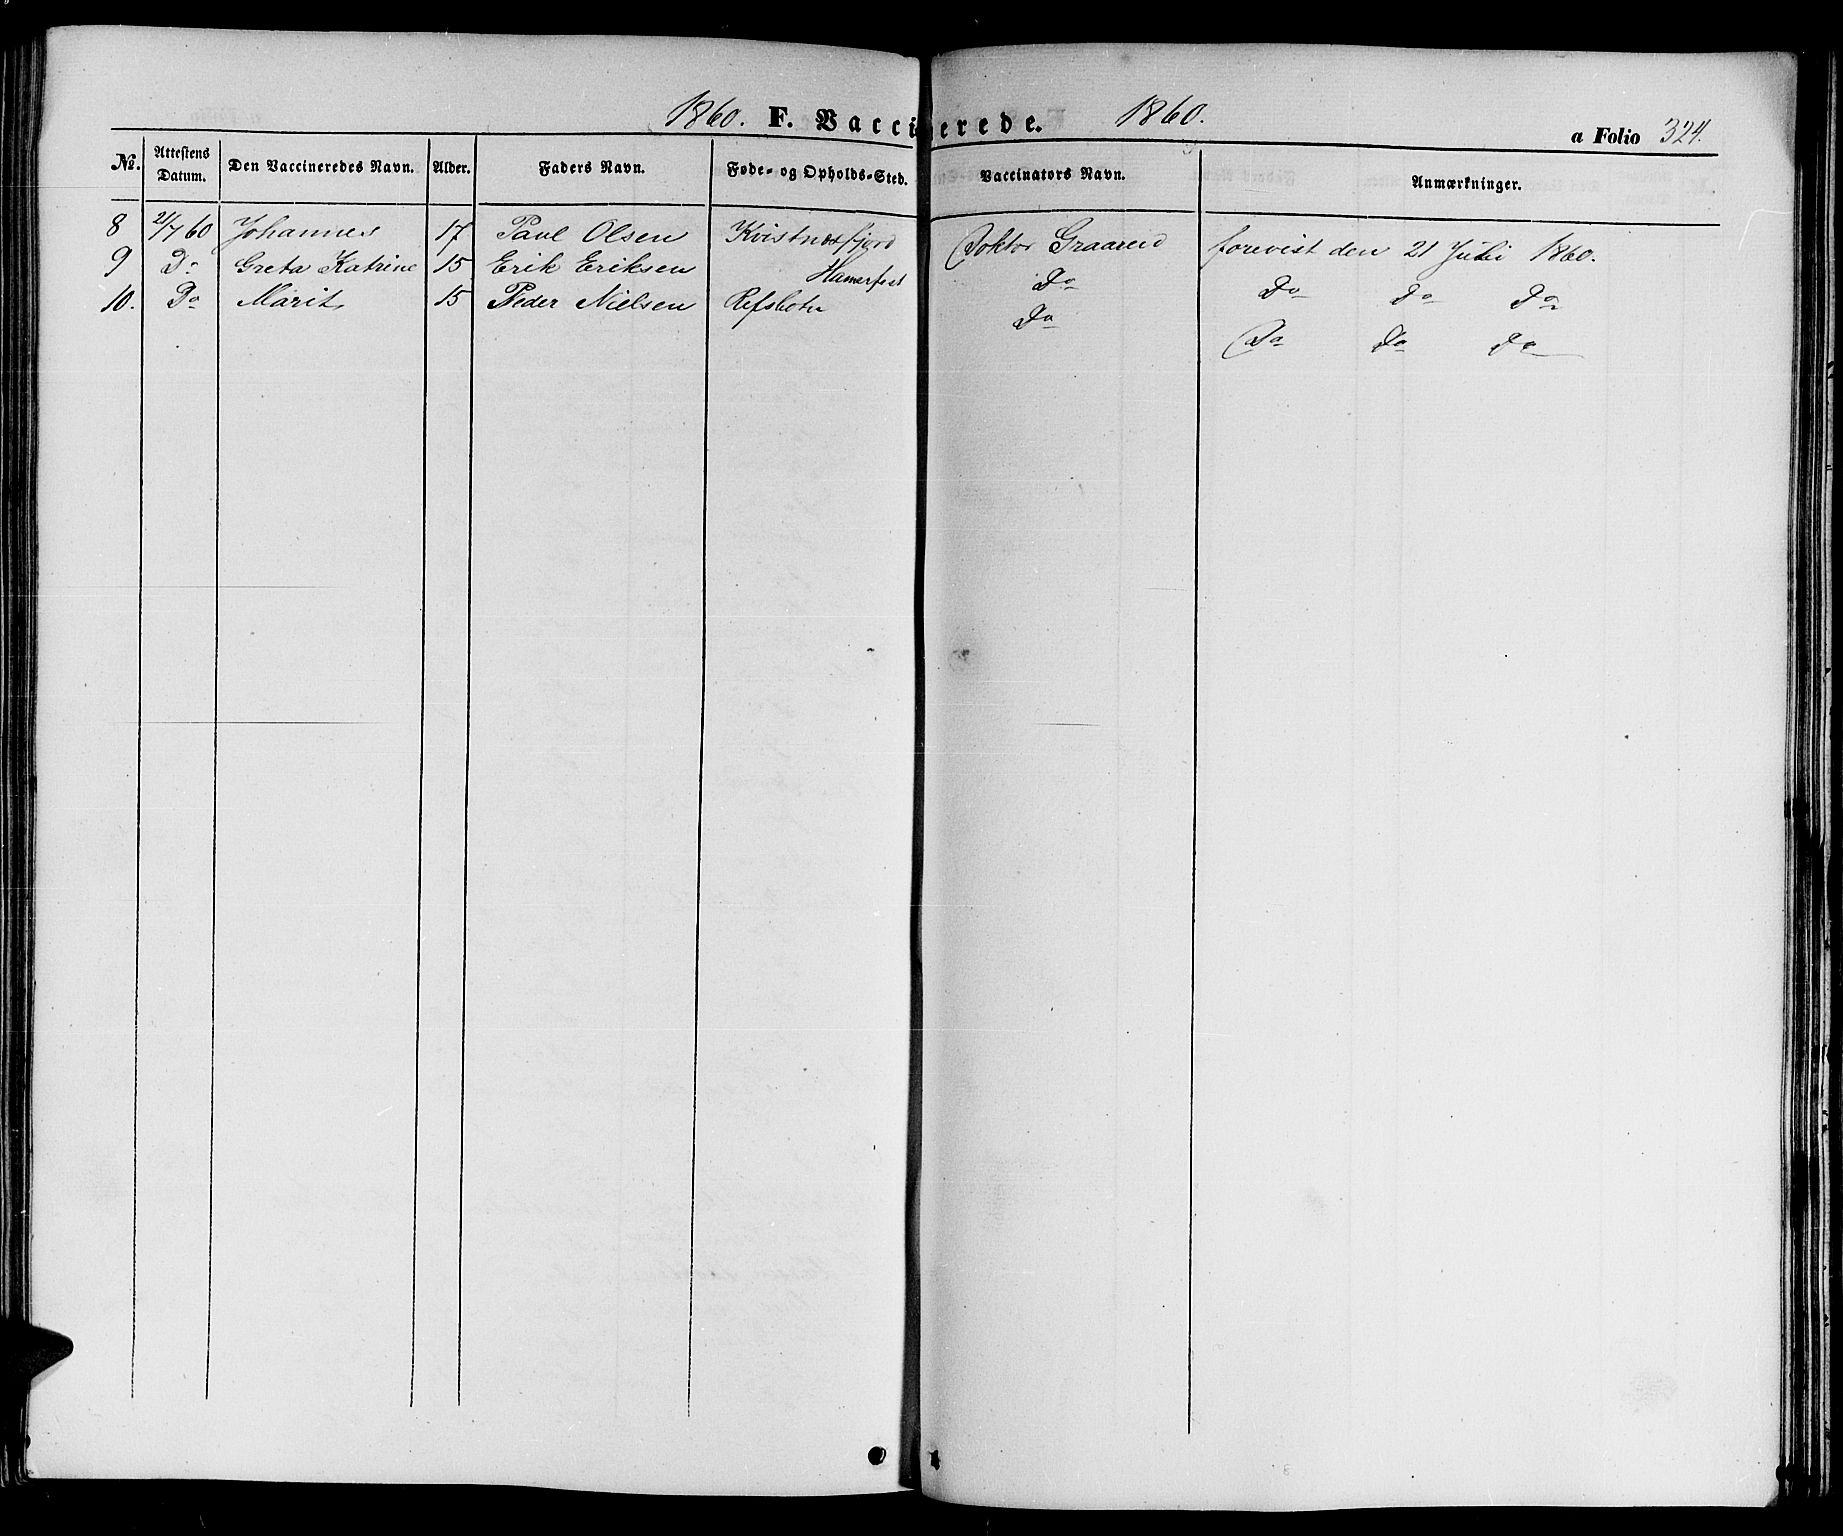 1860. F. Vaccinerede. 1860.
a Folio 324.
No. Attestens Datum. Den Vaccineredes Navn. Alder. Faders Navn. Føde- og Opholds-Sted. Vaccinators Navn. Anmærkninger.
8 21/7 60 Johannes 17 Paul Olsen Kvistnesfjord Doktor Graarud forevist den 21 Juli 1860.
9 Do Greta Katrine 15 Erik Eriksen Hamerfest Do Do Do Do
10. Do Marit 15 Peder Nielsen Refsbotn Do Do Do Do